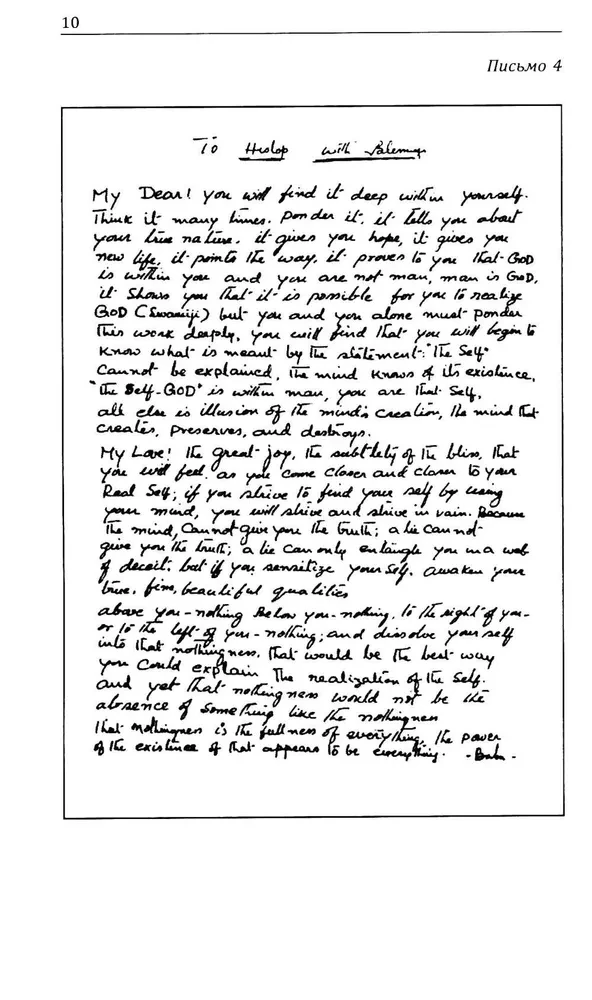 10
Письмо 4
To Hislop with Blessings
My Dear! you will find it deep within yourself.
Think it many times. Ponder it, it tells you about
your true nature. it gives you hope, it gives you
new life, it points the way, it proves to you that GOD
is within you and you are not man, man is GOD,
it shows you that it is possible for you to realize
GOD (Swamiji) but you and you alone must ponder
this work deeply, you will find that you will begin to
know what is meant by the statement: "The Self"
Cannot be explained, the mind knows of its existence,
"the Self-GOD" is within man, you are that Self,
all else is illusion of the mind's creation, the mind that
creates, preserves, and destroys.
My Love! the great joy, the subtlety of the bliss, that
you will feel, as you come closer and closer to your
Real Self; if you strive to find your self by using
your mind, you will strive and strive in vain. Because
the mind, Cannot give you the truth; a lie cannot
give you the truth; a lie can only entangle you in a web
of deceit; but if you sensitize your self, awaken your
true, fine, beautiful qualities
above you-nothing Below you-nothing, to the right of you-
or to the left of you-nothing; and dissolve your self
into that nothingness, that would be the best way
you could explain the realization of the Self.
and yet that nothingness would not be the
absence of something like the nothingness
that nothingness is the fullness of everything, the power
of the existence of that appears to be everything. -Baba-